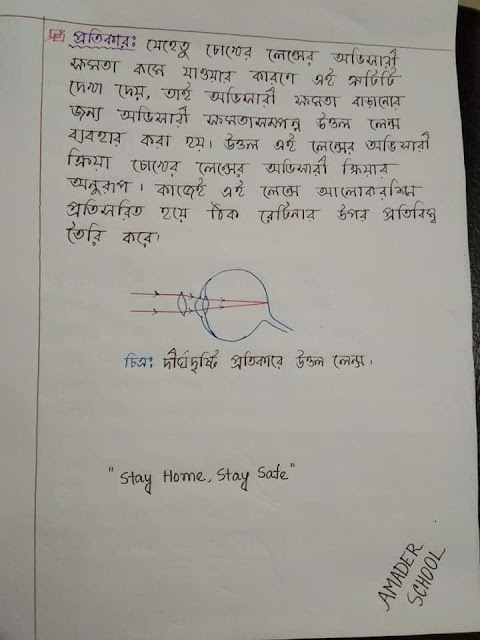 প্রতিকার: যেহেতু চোখের লেন্সের অভিসারী
ক্ষমতা কমে যাওয়ার কারণে এই ত্রুটিটি
দেখা দেয়, তাই অভিসারী ক্ষমতা বাড়ানোর
জন্য অভিসারী ক্ষমতাসম্পন্ন উত্তল লেন্স
ব্যবহার করা হয়। উত্তল এই লেন্সের অভিসারী
ক্রিয়া চোখের লেন্সের অভিসারী ক্রিয়ার
অনুরূপ। কাজেই এই লেন্সে আলোকরশ্মি
প্রতিসরিত হয়ে ঠিক রেটিনার উপর প্রতিবিম্ব
তৈরি করে।
চিত্র: দীর্ঘদৃষ্টি প্রতিকারে উত্তল লেন্স।
"Stay Home, Stay Safe"
AMADER
SCHOOL